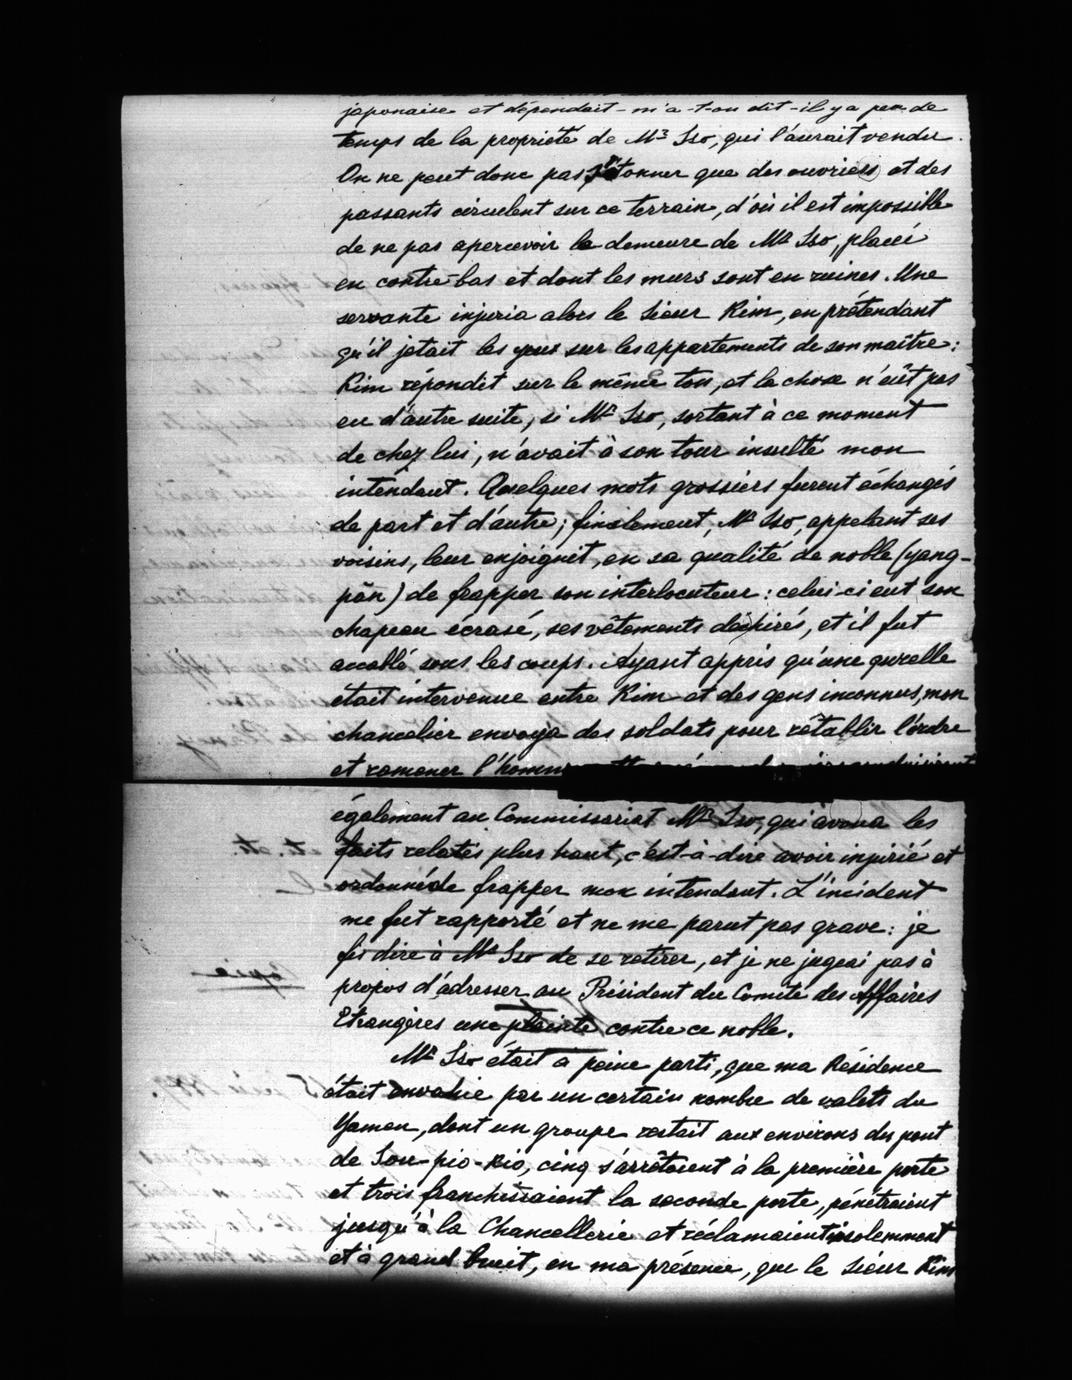 japonaise et dépendait - m'a-t-on dit - il y a peu de
temps de la propriété de Mr Sso, qui l'aurait vendu.
On ne peut donc pas s'étonner que des ouvriers et des
passants circulent sur ce terrain, d'où il est impossible
de ne pas apercevoir la demeure de Mr Sso, placée
en contre-bas et dont les murs sont en ruines. Une
servante injuria alors le Sieur Kim, en prétendant
qu'il jetait les yeux sur les appartements de son maître :
Kim répondit sur le même ton, et la chose n'eût pas
eu d'autre suite, si Mr Sso, sortant à ce moment
de chez lui, n'avait à son tour insulté mon
intendant. Quelques mots grossiers furent échangés
de part et d'autre ; finalement, Mr Sso, appelant ses
voisins, leur enjoignit, en sa qualité de noble (yang-
pān) de frapper son interlocuteur : celui-ci eut son
chapeau écrasé, ses vêtements déchirés, et il fut
accablé sous les coups. Ayant appris qu'une querelle
était intervenue entre Kim et des gens inconnus, mon
chancelier envoya des soldats pour rétablir l'ordre
et ramener l'homme
également au Commissariat Mr Sso, qui avoua les
faits relatés plus haut, c'est-à-dire avoir injurié et
ordonné de frapper mon intendant. L'incident
me fut rapporté et ne me parut pas grave : je
fis dire à Mr Sso de se retirer, et je ne jugeai pas à
propos d'adresser au Président du Comité des Affaires
Etrangères une plainte contre ce noble.
Mr Sso était à peine parti, que ma Résidence
était envahie par un certain nombre de valets du
Yamen, dont un groupe restait aux environs du pont
de Sou-pio-kio, cinq s'arrêtaient à la première porte
et trois franchissaient la seconde porte, pénétraient
jusqu'à la Chancellerie et réclamaient insolemment
et à grand bruit, en ma présence, que le Sieur Kim